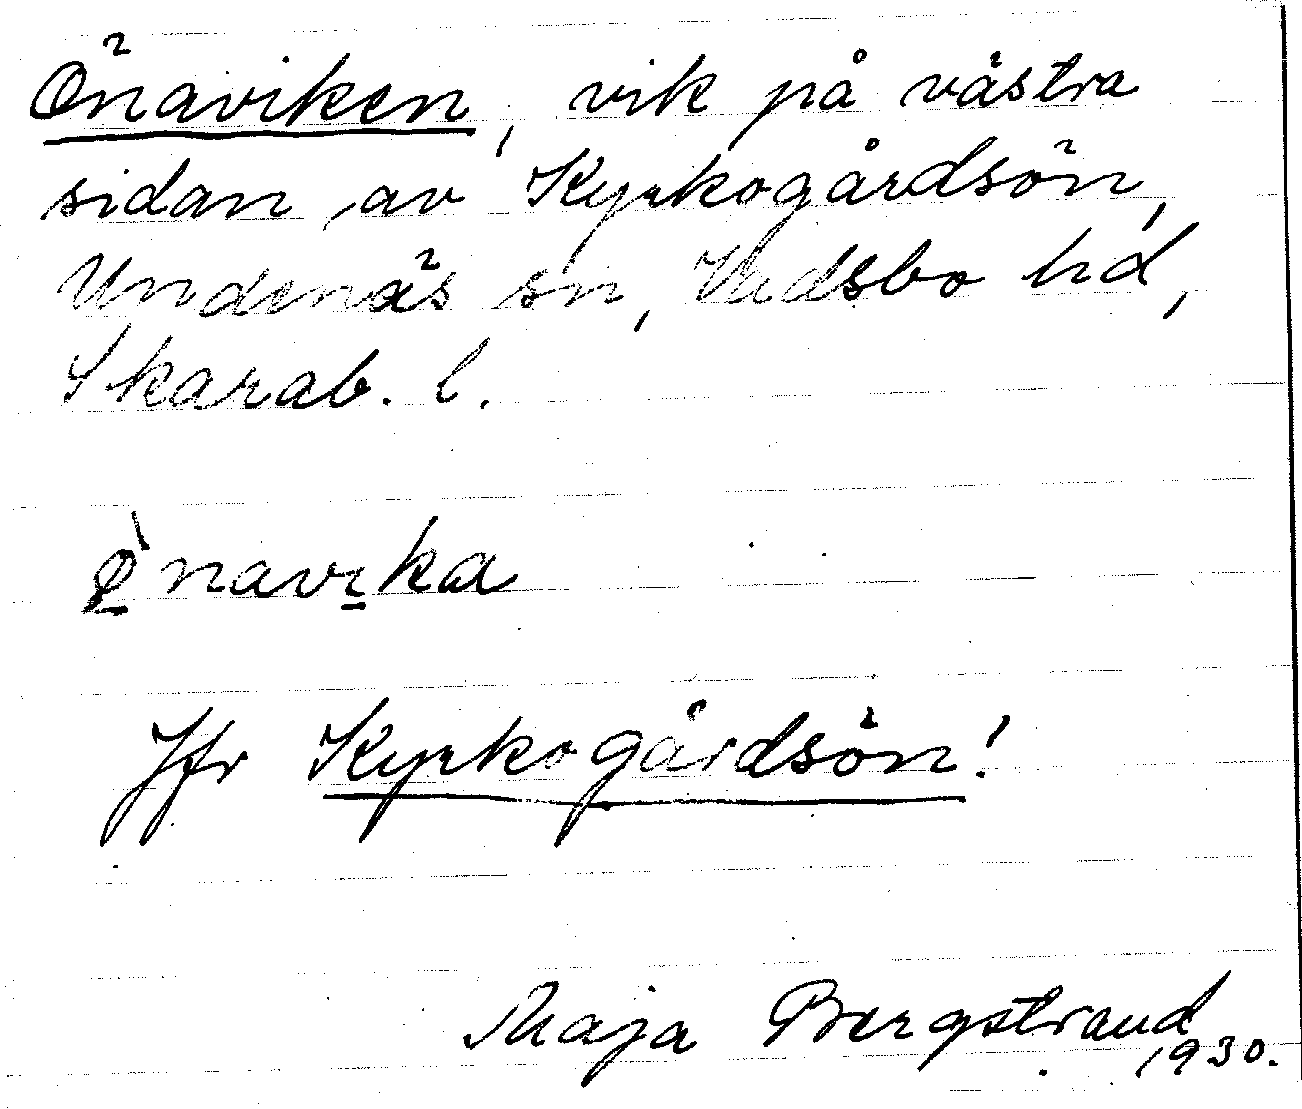 Önaviken, vik på västra
sidan av Kyrkogårdsön,
Undenäs sn, Vadsbo hd,
Skarab. l.
ø̱̀navɪ̱ka
Jfr Kyrkogårdsön!
Maja Bergstrand
1930.